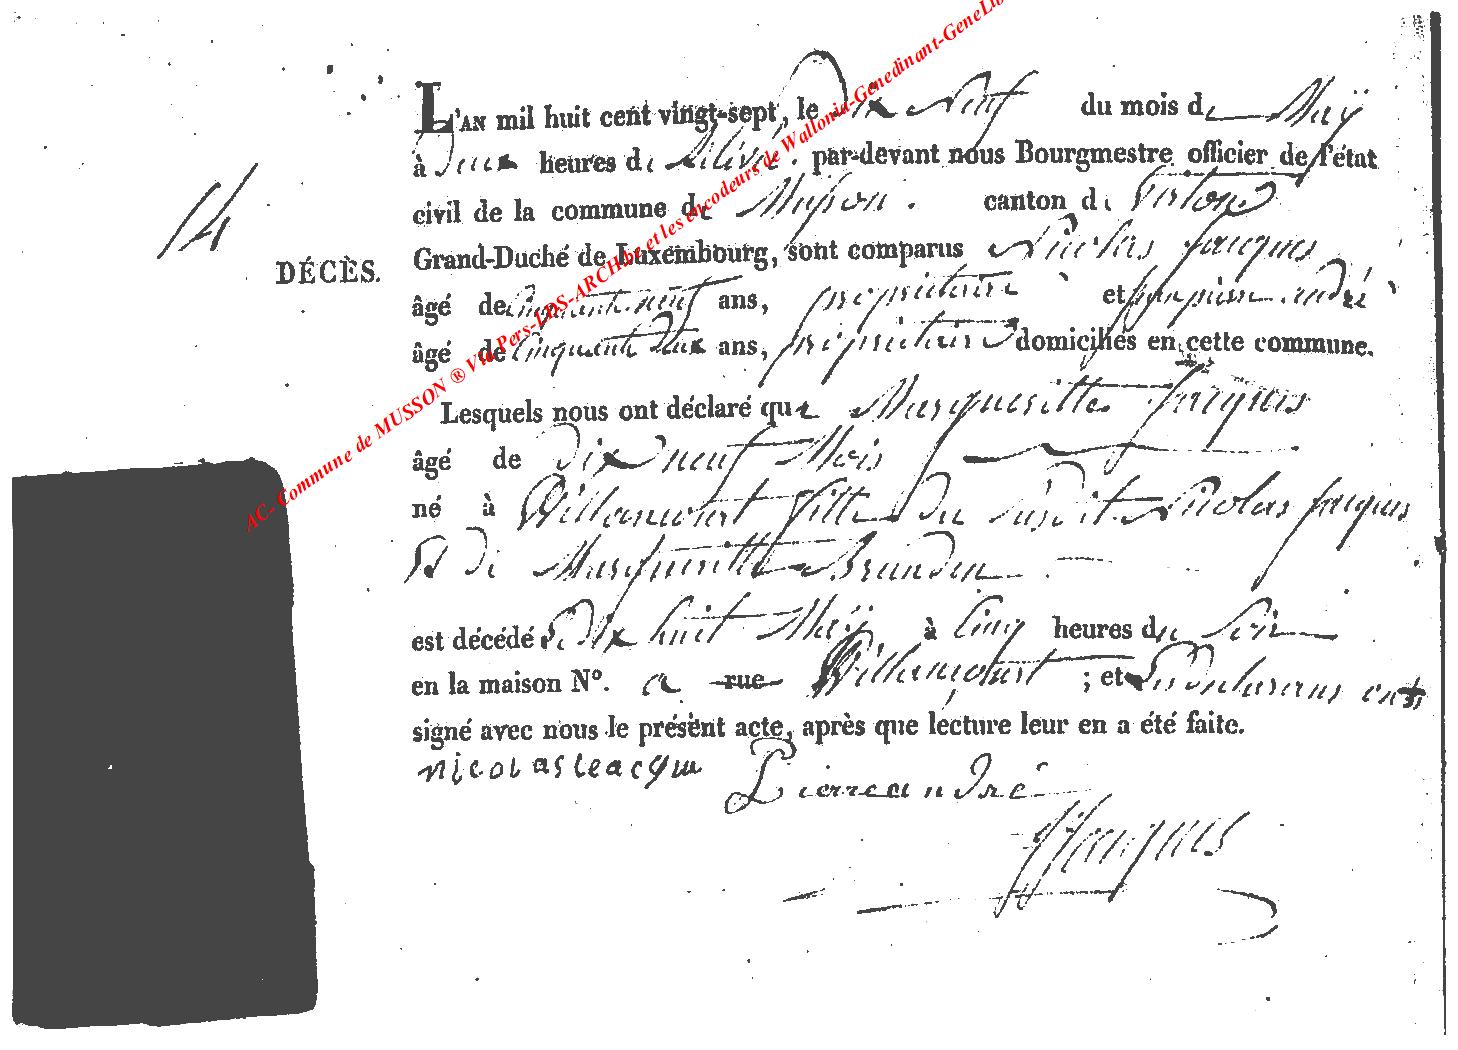 AC- Commune de MUSSON ® Via Pers-LDS-ARCH.be et les encodeurs de Wallonia-Genedinant-GeneLib
L'AN mil huit cent vingt-sept, le Dix Neuf du mois de Maÿ
à Deux heures de Relevée. par-devant nous Bourgmestre officier de l'état
14
civil de la commune de Musson. canton de Virton
DÉCÈS.
Grand-Duché de Luxembourg, sont comparus Nicolas Jacques
âgé de neuf ans, propriétaire et jean pierre andré
âgé de Cinquante Deux ans, propriétaire domiciliés en cette commune.
Lesquels nous ont déclaré que Margueritte Jacques
âgé de dix neuf Mois
né à Willancourt fille Du Susdit Nicolas Jacques
Et De Margueritte
est décédé Le Dix huit Maÿ à Cinq heures du Soir
en la maison N°. a rue Willancourt ; et Les Déclarans ont
signé avec nous le présent acte, après que lecture leur en a été faite.
nicolas ieacque Pierre andré
Jacques